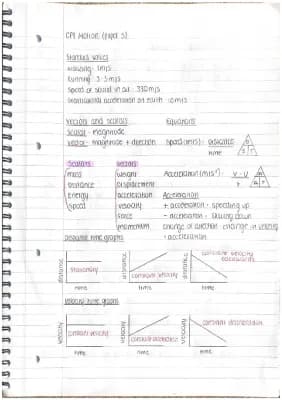 CP1 Motion (paper 5)
Standard values
Walking - 1m/s
Running - 3-5m/s
Speed of sound in air - 330m/s
Gravitational acceleration on earth - 10m/s
Vectors and scalars Equations
Scalar - magnitude
Vector - magnitude + direction Speed (m/s): distance
time
Scalars Vectors
mass weight Acceleration (m/s²): v - u
distance displacement t
Energy acceleration Acceleration
Speed velocity + acceleration - speeding up
force - acceleration - slowing down
momentum change of direction - change in velocity
Distance time graphs - acceleration
distance stationary distance constant velocity distance constant velocity backwards
time time time
Velocity time graphs
velocity constant velocity velocity constant acceleration velocity constant deceleration
time time time